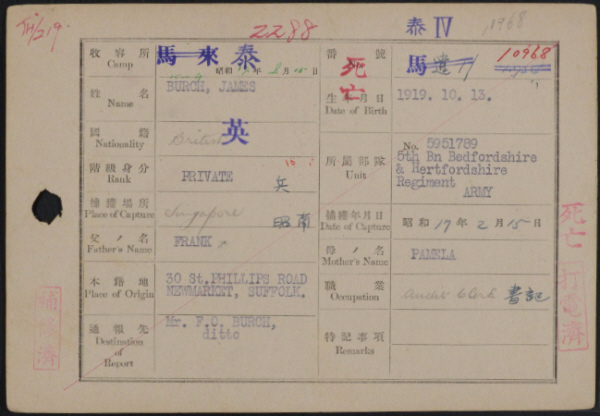 2288
泰 IV
10968
收容所 Camp 馬來 泰
昭和 年 月 日
番號 馬
10968
姓名 Name BURCH, JAMES
死亡
生年月日 Date of Birth 1919. 10. 13.
國籍 Nationality British 英
所屬部隊 Unit No. 5951789
5th Bn Bedfordshire
& Hertfordshire
Regiment
ARMY
階級身分 Rank PRIVATE 兵
捕獲場所 Place of Capture Singapore 昭南
捕獲年月日 Date of Capture 昭和 17 年 2 月 15 日
父ノ名 Father's Name FRANK
母ノ名 Mother's Name PAMELA
本籍地 Place of Origin 30 St.PHILLIPS ROAD
NEWMARKET, SUFFOLK.
職業 Occupation Audit Clerk 書記
通報先 Destination of Report Mr. F.O. BURCH,
ditto
特記事項 Remarks
死亡
打電濟
濟